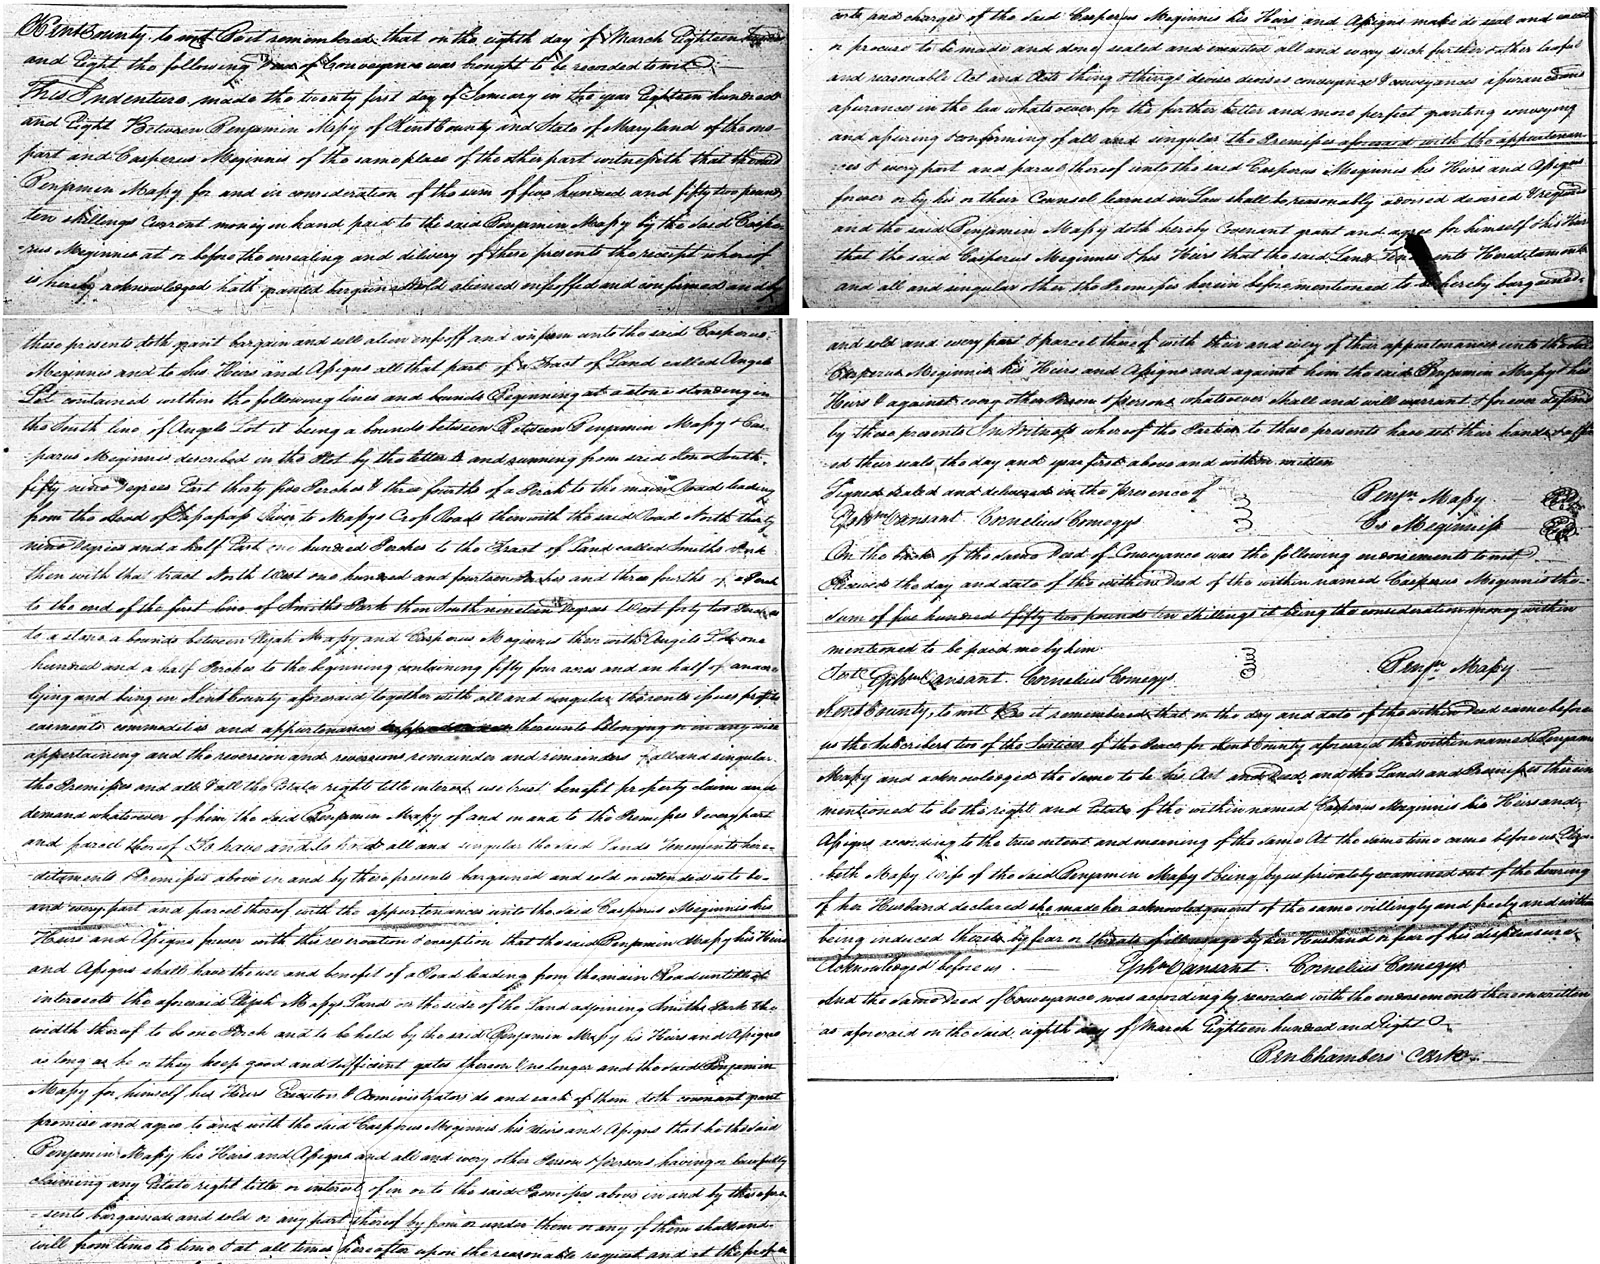 Kent County to wit Be it remembered that on the eighth day of March Eighteen hundred
and Eight the following Deed of Conveyance was brought to be recorded to wit
This Indenture made the twenty first day of January in the year Eighteen hundred
and Eight Between Benjamin Massy of Kent County and State of Maryland of the one
part and Casperus Meginnis of the same place of the other part witnesseth that the said
Benjamin Massy for and in consideration of the sum of five hundred and fifty two pounds
ten shillings Current money in hand paid to the said Benjamin Massy by the said Caspe-
-rus Meginnis at or before the ensealing and delivery of these presents the receipt whereof
is hereby acknowledged hath granted bargained sold aliened enfeoffed and confirmed and by
these presents doth grant bargain and sell alien enfeoff and confirm unto the said Casperus
Meginnis and to his Heirs and Assigns all that part of a Tract of Land called Angels
Lot contained within the following lines and bounds Beginning at a stone standing in
the South line of Angels Lot it being a bounds between Between Benjamin Massy & Cas-
-parus Meginnis described in the Plot by the letter and running from said stone South
fifty nine Degrees East thirty five Perches & three fourths of a Perch to the main Road leading
from the Head of Sassafras River to Massys Cross Roads then with the said Road North thirty
nine Degrees and a half East one hundred Perches to the Tract of Land called Smiths Park
then with that tract North West one hundred and fourteen Perches and three fourths of a Perch
to the end of the first line of Smiths Park then South nineteen Degrees West forty two Perches
to a stone a bounds between Elijah Massy and Casperus Meginnis then with Angels Lot one
hundred and a half Perches to the beginning containing fifty four acres and an half of an acre
lying and being in Kent County aforesaid together with all and singular the rents issues profits
easments commodities and appurtenances thereunto belonging or in any wise
appertaining and the reversion and reversions remainder and remainders of all and singular
the Premisses and all & all the Estate right title interest use trust benefit property claim and
demand whatever of him the said Benjamin Massy of and in and to the Premisses & every part
and parcel thereof To have and to hold all and singular the said Lands Tenements here-
-ditaments Premisses above in and by these presents bargained and sold or intended so to be
and every part and parcel thereof with the appurtenances unto the said Casperus Meginnis his
Heirs and Assigns forever with this reservation & exception that the said Benjamin Massy his Heirs
and Assigns shall have the use and benefit of a Road leading from the main Road until it
intersects the aforesaid Elijah Massys Land on the side of the Land adjoining Smiths Park the
width thereof to be one Perch and to be held by the said Benjamin Massy his Heirs and Assigns
as long as he or they keep good and sufficient gates thereon & no longer and the said Benjamin
Massy for himself his Heirs Executors & Administrators do and each of them doth covenant grant
promise and agree to and with the said Casperus Meginnis his Heirs and Assigns that he the said
Benjamin Massy his Heirs and Assigns and all and every other Person & Persons having or lawfully
claiming any Estate right title or interest of in or to the said Premisses above in and by these pre-
-sents bargained and sold or any part thereof by from or under them or any of them shall and
will from time to time & at all times hereafter upon the reasonable request and at the proper
costs and charges of the said Casperus Meginnis his Heirs and Assigns make do seal and execute
or procure to be made and done sealed and executed all and every such further & other lawful
and reasonable Act and Acts thing & things devise devises conveyance & conveyances assurance and
assurances in the law whatsoever for the further better and more perfect granting conveying
and assuring & confirming of all and singular the Premisses aforesaid with the appurtenan-
-ces & every part and parcel thereof unto the said Casperus Meginnis his Heirs and Assigns
forever or by his or their Counsel learned in Law shall be reasonably advised devised & required
and the said Benjamin Massy doth hereby Covenant grant and agree for himself & his Heirs
that the said Casperus Meginnis & his Heirs that the said Land Tenements Hereditaments
and all and singular other the Premisses herein before mentioned to be hereby bargained
and sold and every part & parcel thereof with their and every of their appurtenances unto the said
Casperus Meginnis his Heirs and Assigns and against him the said Benjamin Massy & his
Heirs & against every other Person & Persons whatsoever shall and will warrant & forever defend
by these presents In Witness whereof the Parties to these presents have set their hands & affix-
ed their seals the day and year first above and within written
Signed Sealed and delivered in the presence of Benjn Massy
Ephm Vansant Cornelius Comegys Cs Meginniss
On the back of the same Deed of Conveyance was the following endorsements to wit
Received the day and date of the within Deed of the within named Casperus Meginnis the
sum of five hundred & fifty two pounds ten shillings it being the consideration money within
mentioned to be paid me by him
Test Ephm Vansant Cornelius Comegys Benjn Massy
Kent County, to wit Be it remembered that on the day and date of the within Deed came before
us the subscribers two of the Justices of the Peace for Kent County aforesaid the within named Benjamin
Massy and acknowledged the same to be his Act and Deed and the Lands and Premisses therein
mentioned to be the right and Estate of the within named Casperus Meginnis his Heirs and
Assigns according to the true extent and meaning of the same At the same time came before us Eliza-
-beth Massy wife of the said Benjamin Massy & being by us privately examined out of the hearing
of her Husband declared she made her acknowledgment of the same willingly and freely and without
being induced thereto by fear or threats of ill usage by her Husband or fear of his displeasure
Acknowledged before us Ephm Vansant Cornelius Comegys
And the same Deed of Conveyance was accordingly recorded with the endorsements thereon written
as aforesaid on the said eighth day of March Eighteen hundred and Eight
Ben Chambers Clerk